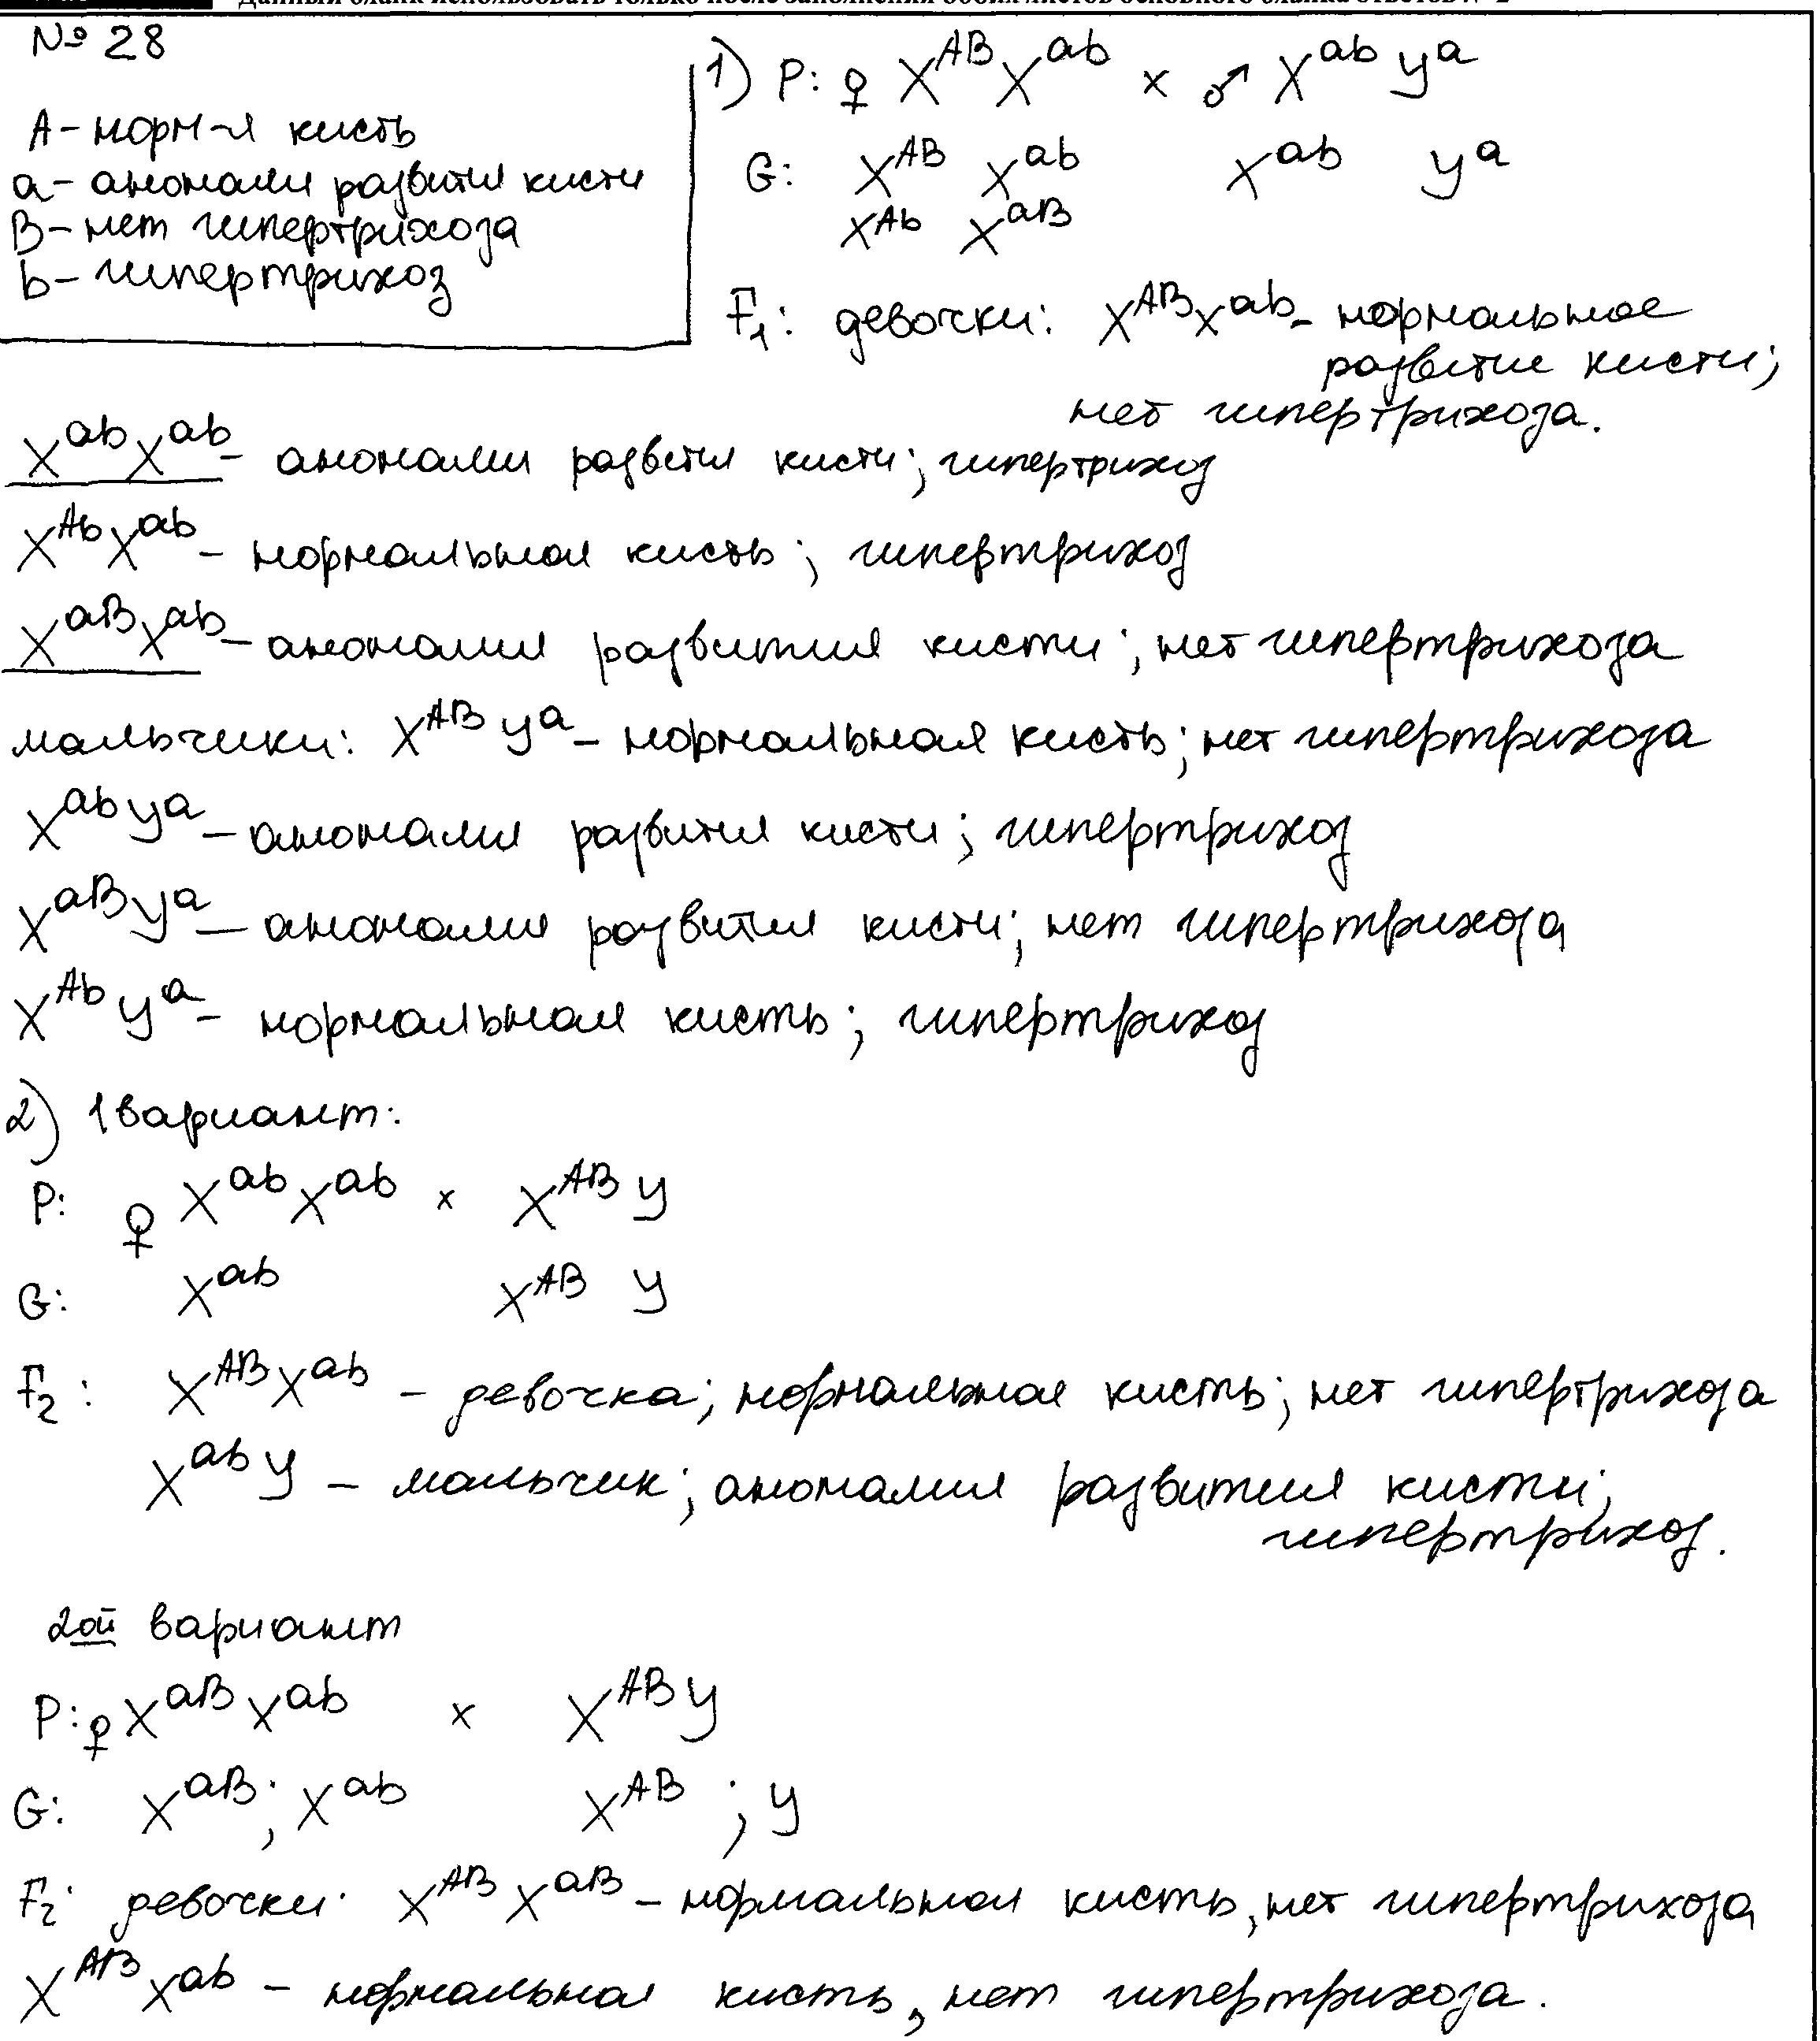 Данный бланк использовать только после заполнения обоих листов основного бланка ответов № 2
№ 28
А - норм-я кисть
а - аномалия развития кисти
В - нет гипертрихоза
b - гипертрихоз
1) P: ♀ X^AB X^ab x ♂ X^ab y^a
G: X^AB X^ab X^ab y^a
X^Ab X^aB
F₁: девочки: X^AB X^ab - нормальное
развитие кисти;
нет гипертрихоза.
X^ab X^ab - аномалия развития кисти; гипертрихоз
X^Ab X^ab - нормальная кисть; гипертрихоз
X^aB X^ab - аномалия развития кисти; нет гипертрихоза
мальчики: X^AB y^a - нормальная кисть; нет гипертрихоза
X^ab y^a - аномалия развития кисти; гипертрихоз
X^aB y^a - аномалия развития кисти; нет гипертрихоза
X^Ab y^a - нормальная кисть; гипертрихоз
2) 1 вариант:
P: ♀ X^ab X^ab x X^AB y
G: X^ab X^AB y
F₂: X^AB X^ab - девочка; нормальная кисть; нет гипертрихоза
X^ab y - мальчик; аномалия развития кисти;
гипертрихоз.
2ой вариант
P: ♀ X^aB X^ab x X^AB y
G: X^aB; X^ab X^AB; y
F₂: девочки: X^AB X^aB - нормальная кисть, нет гипертрихоза
X^AB X^ab - нормальная кисть, нет гипертрихоза.